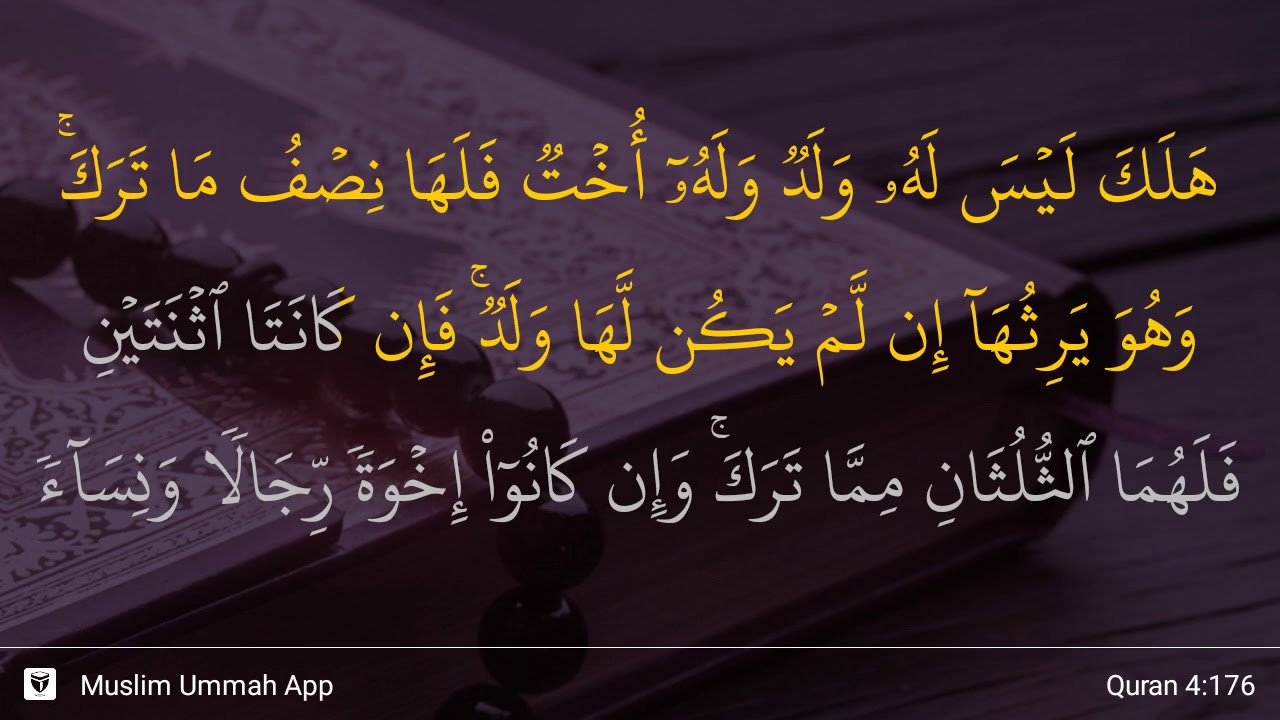 هَلَكَ لَيۡسَ لَهُۥ وَلَدٞ وَلَهُۥٓ أُخۡتٞ فَلَهَا نِصۡفُ مَا تَرَكَۚ
وَهُوَ يَرِثُهَآ إِن لَّمۡ يَكُن لَّهَا وَلَدٞۚ فَإِن كَانَتَا ٱثۡنَتَيۡنِ
فَلَهُمَا ٱلثُّلُثَانِ مِمَّا تَرَكَۚ وَإِن كَانُوٓاْ إِخۡوَةٗ رِّجَالٗا وَنِسَآءٗ
Muslim Ummah App
Quran 4:176